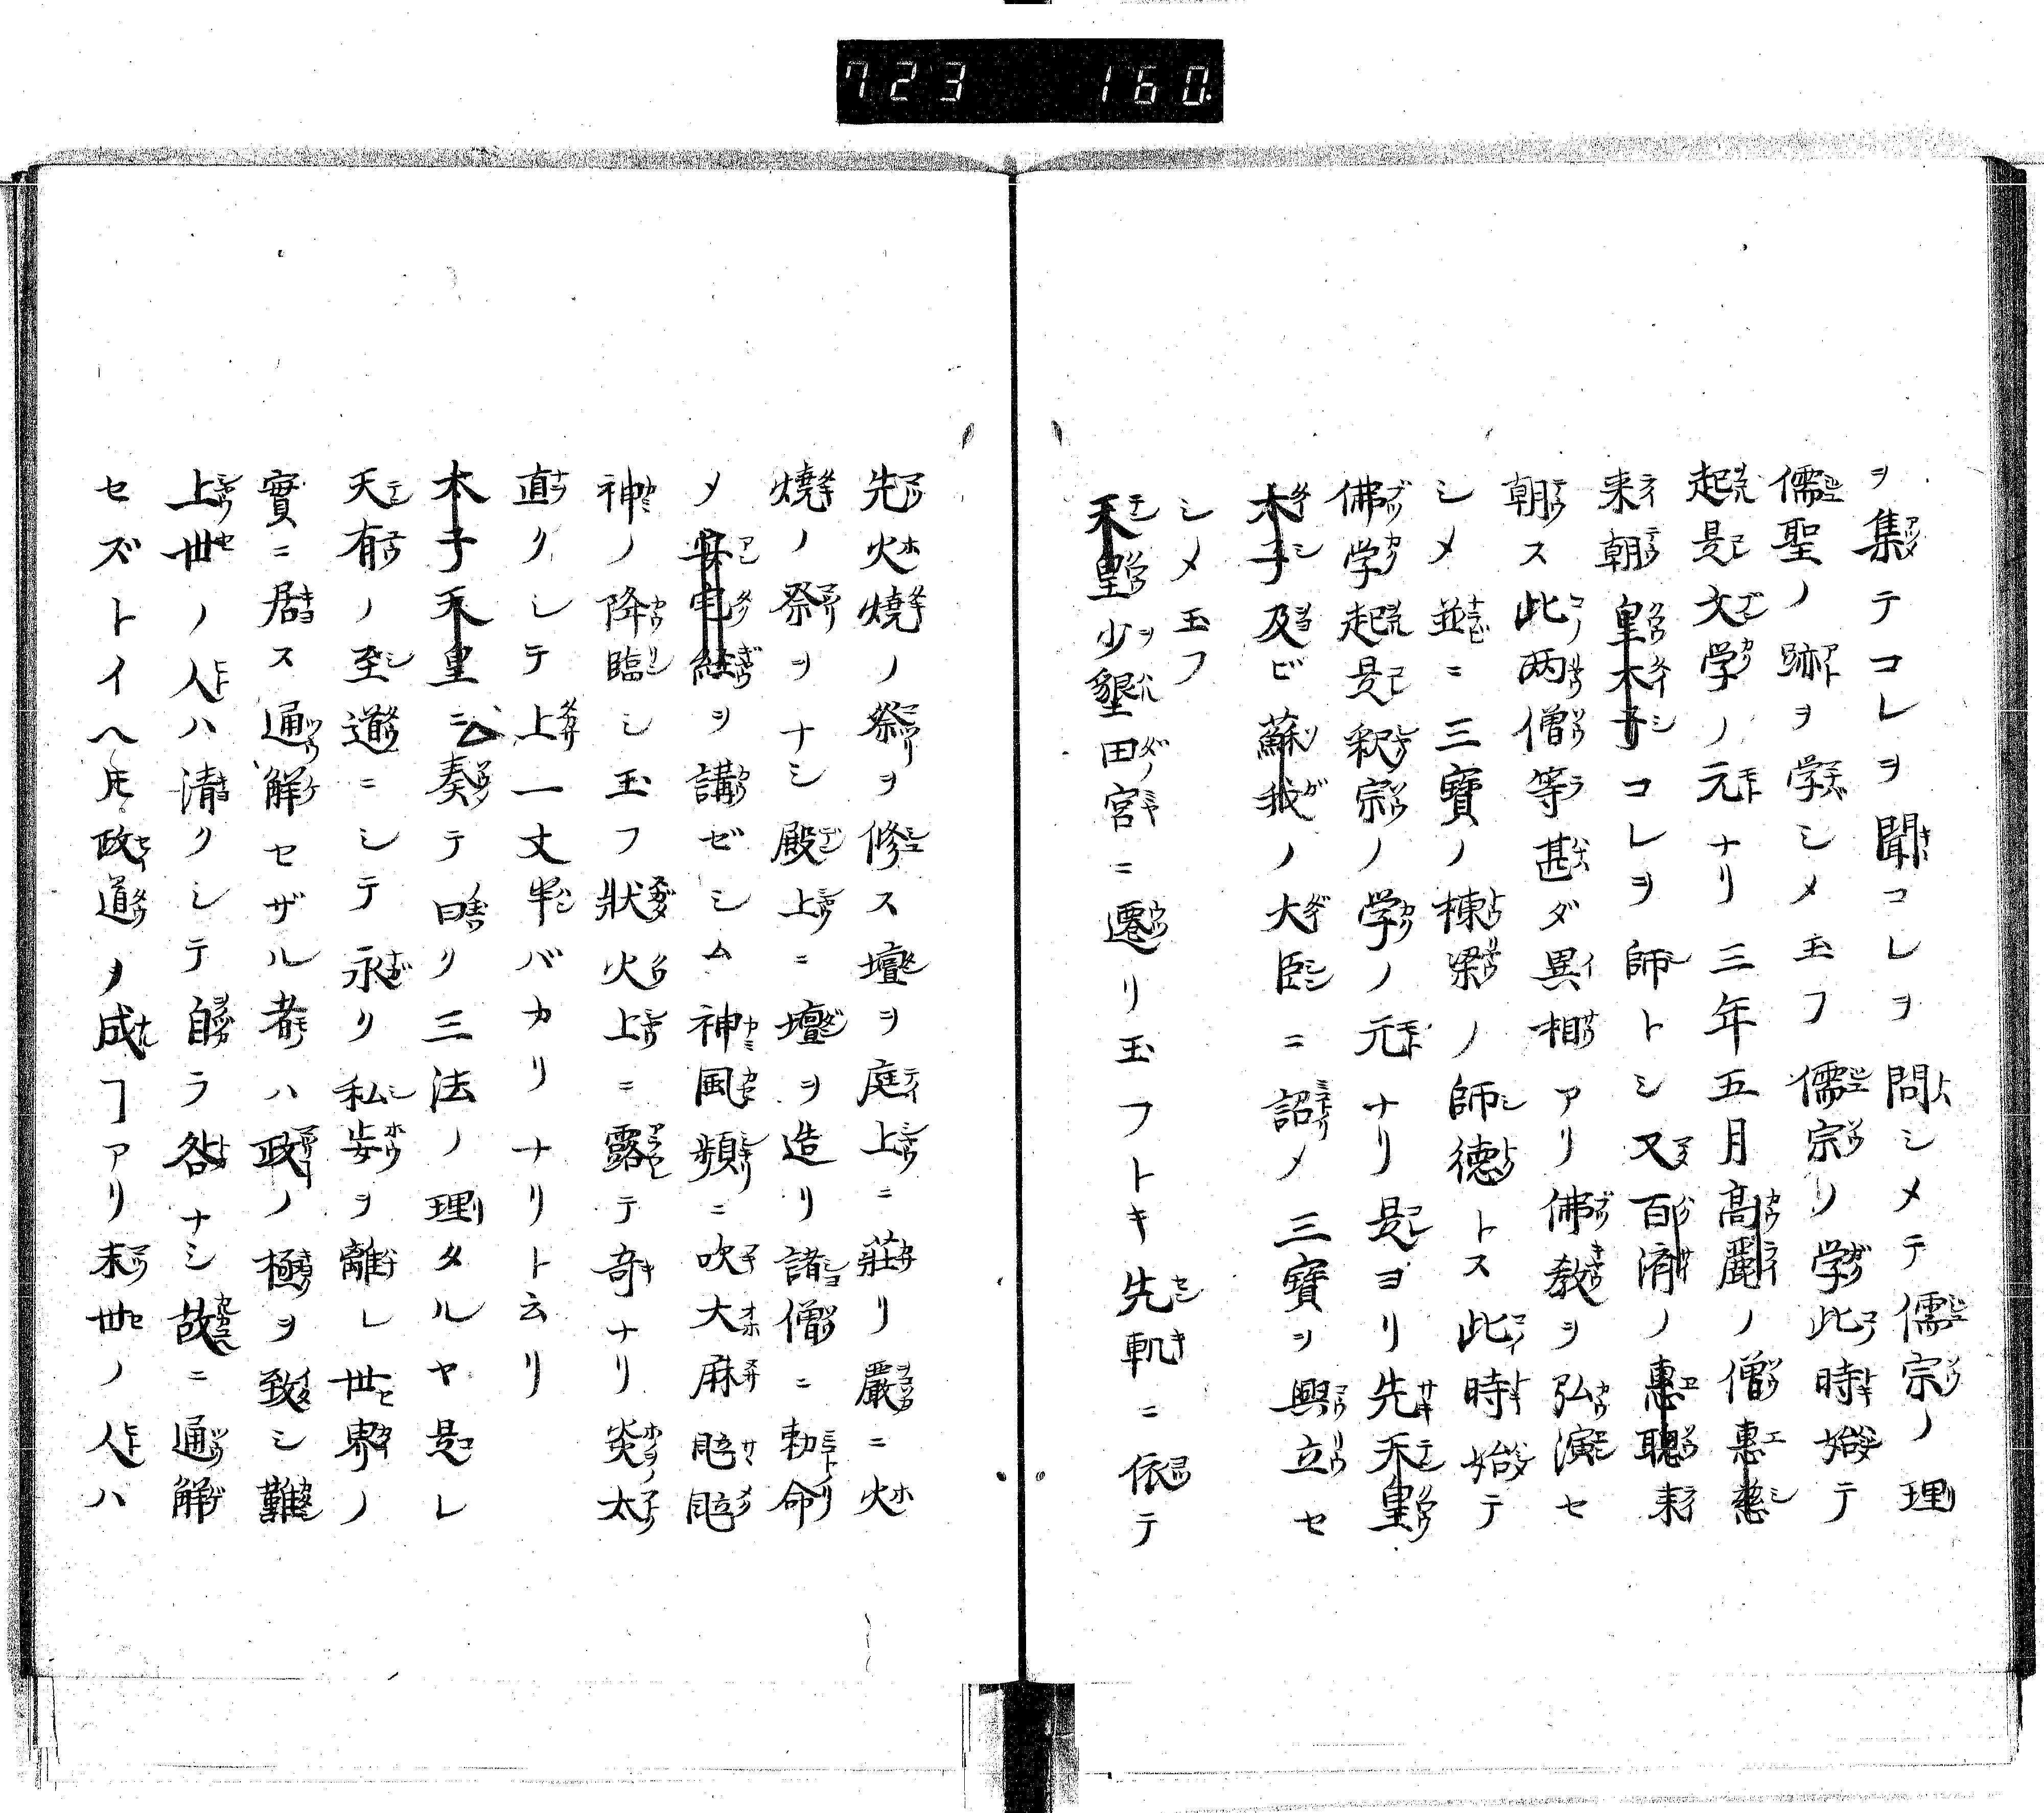 723 160.
ヲ集テコレヲ聞コレヲ問シメテ儒宗ノ理
儒聖ノ跡ヲ学シメ玉フ儒宗リ学此時始テ
起是文学ノ元ナリ三年五月高麗ノ僧惠慈
来朝皇太子コレヲ師トシ又百濟ノ惠聰来
朝ス此两僧等甚ダ異相アリ佛教ヲ弘演セ
シメ並ニ三寶ノ棟梁ノ師徳トス此時始テ
佛学起是釈宗ノ学ノ元ナリ是ヨリ先天皇
太子及ビ蘇我ノ大臣ニ詔メ三寶ヲ興立セ
シメ玉フ
天皇少墾田宮ニ遷リ玉フトキ先軌ニ依テ
先火燒ノ祭ヲ修ス壇ヲ庭上ニ莊リ嚴ニ火
燒ノ祭ヲナシ殿上ニ壇ヲ造リ諸僧ニ勅命
メ安宅經ヲ講ゼシム神風頻ニ吹大麻
神ノ降臨シ玉フ狀火上ニ露テ奇ナリ炎太
直クシテ上一丈半バカリナリト云リ
太子天皇ニ奏テ曰リ三法ノ理タルヤ是レ
天有ノ至道ニシテ永リ私歩ヲ離レ世界ノ
實ニ居ス通解セザル者ハ政ノ極ヲ致シ難
上世ノ人ハ清クシテ自ラ咎ナシ故ニ通解
セズトイヘ𪜈政道ヲ成ヿアリ末世ノ人ハ